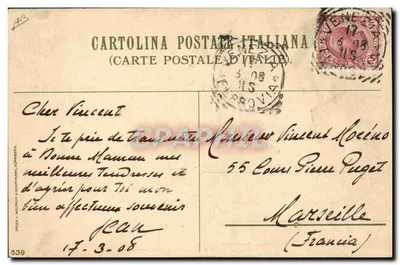 CARTOLINA POSTALE ITALIANA
(CARTE POSTALE D'ITALIE)
VENEZIA
17
3 08
11S
FERROVIA
3 08
11S
Cher Vincent
Je te prie de transmettre
à Bonne Maman mes
meilleures tendresses et
d'agréer pour toi mon
bien affectueux souvenir
Jean
17-3-08
Monsieur Vincent Moréno
55 Cours Pierre Puget
Marseille
(Francia)
539